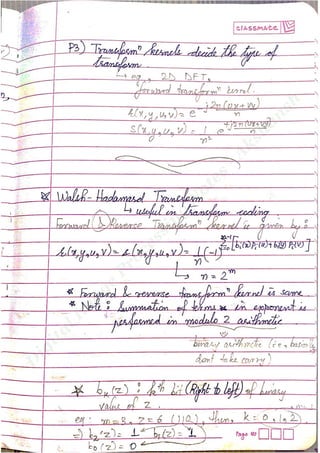 classmate
P3) Transformⁿ kernels decide the type of
transform
↳ eg., 2D DFT,
forward transformⁿ kernel.
r(x,y,u,v) = e^{-j2π(ux+vy)/n}
s(x,y,u,v) = 1/n² e^{+j2π(ux+vy)/n}
* Walsh-Hadamard Transform
↳ useful in transform coding
Forward & Reverse Transformⁿ kernel is given by:
r(x,y,u,v) = s(x,y,u,v) = 1/n (-1)^{Σ_{i=0}^{m-1} [b_i(x)p_i(u)+b_i(y)p_i(v)]}
↳ n = 2^m
* Forward & reverse transformⁿ kernel is same
* Note: Summation of terms in exponent is
performed in modulo 2 arithmetic.
binary arithmetic (i.e., basically
dont take carry)
* b_k(z): kth bit (Right to left) of binary
value of z.
eg: m=3, z=6 (110), then, k=0,1,2
⇒ b_2(z)= 1 b_1(z)= 1
b_0(z)= 0
Page No